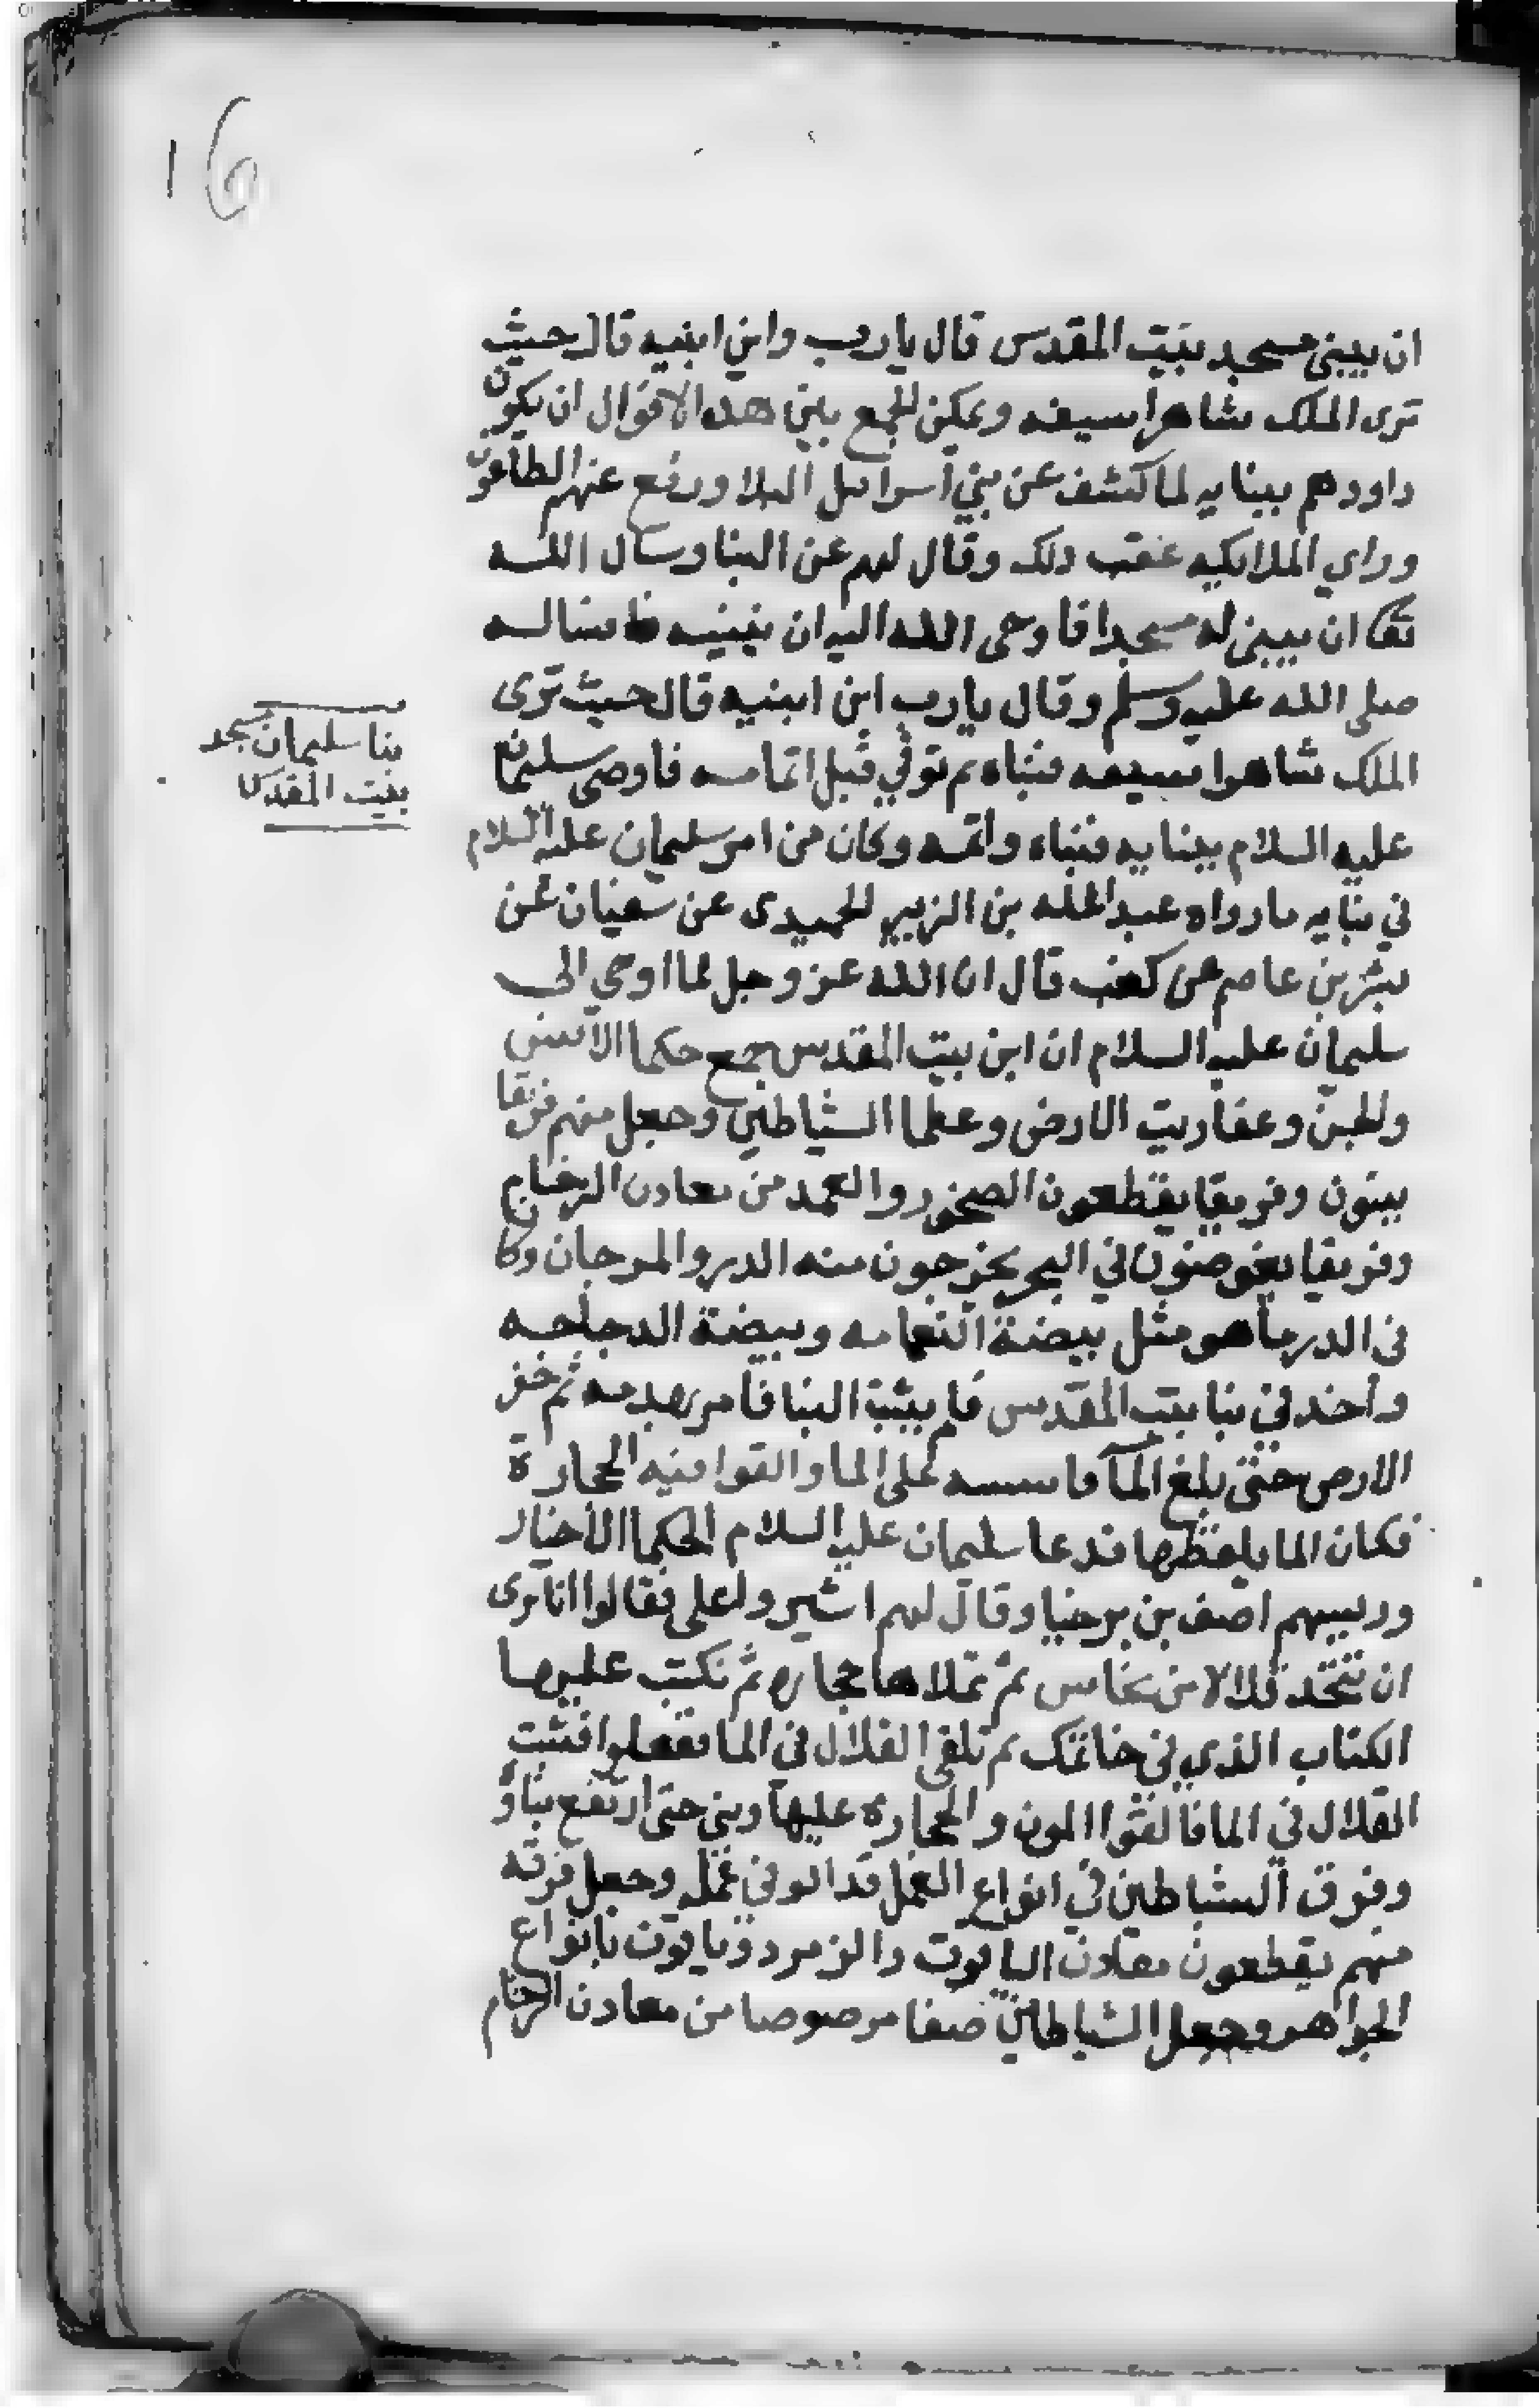 16
ان يبني مسجد بيت المقدس قال يارب واين ابنيه قال حيث
ترى الملك شاهرا سيفه ويمكن الجمع بين هده الاقوال ان يكون
داود هم ببنايه لما كشف عن بني اسرائيل البلا ورفع عنهم الطاعون
وراي الملائكيه عقب دلك وقال لهم عن البنا وسال الله
تعا ان يبني له مسجدا فاوحى الله اليه ان يبنيه فساله
صلى الله عليه وسلم وقال يارب اين ابنيه قال حيث ترى
الملك شاهرا بسيفه فبناه ثم توفي قبل اتمامه فاوصى سليمان
بنا سليمان مسجد
بيت المقدس
عليه السلام ببنايه فبناه واتمه وكان من امر سليمان عليه السلام
في بنايه مارواه عبدالله بن الزبير الحميدى عن سفيان عن
بشر بن عاصم عن كعب قال ان الله عز وجل لما اوحى الى
سليمان عليه السلام ان ابن بيت المقدس جمع حكما الانس
والجن وعفاريت الارض وعلما الشياطين وجعل منهم فريقا
يبنون وفريقا يقطعون الصخور والعمد من معادن الرخام
وفريقا يغوصون في البحر يخرجون منه الدر والمرجان وكان
في الدر ما هو مثل بيضة النعامه وبيضة الدجاجه
واخد في بنا بيت المقدس فلم يثبت البنا فامر بهدمه ثم حفر
الارض حتى بلغ المآ فاسسه على الما والقوا فيه الحجارة
فكان الما يلفظها فدعا سليمان عليه السلام الحكما الاحبار
ورييسهم اصف بن برخيا وقال لهم اشيروا على فقالوا انا نرى
ان نتخد قلالا من نحاس ثم نملاها حجاره ثم نكتب عليها
الكتاب الذي في خاتمك ثم تلقى القلال في الما ففعلوا فثبت
القلال في الما فالقوا المون والحجاره عليها وبني حتى ارتفع بناؤ
وفرق الشياطين في انواع العمل فدابوا في عمله وجعل فرقه
منهم يقطعون معادن الياقوت والزمرد وياتون بانواع
الجواهر وجعل الشياطين صفا مرصوصا من معادن الرخام